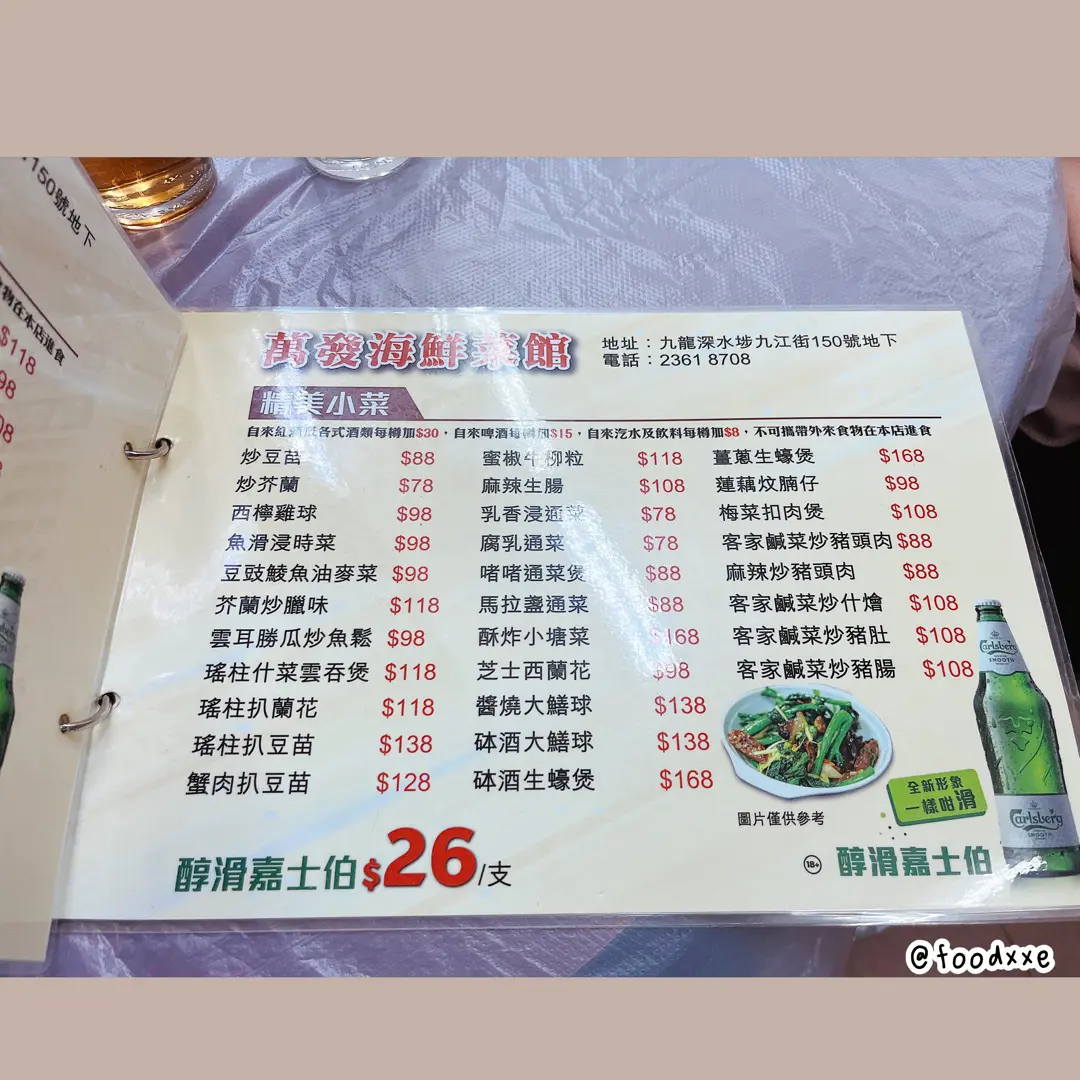 150號地下
物在本店進食
$118
98
08
萬發海鮮菜館
地址：九龍深水埗九江街150號地下
電話：2361 8708
精美小菜
自來紅酒或各式酒類每樽加$30，自來啤酒每樽加$15，自來汽水及飲料每樽加$8，不可攜帶外來食物在本店進食
炒豆苗 $88
炒芥蘭 $78
西檸雞球 $98
魚滑浸時菜 $98
豆豉鯪魚油麥菜 $98
芥蘭炒臘味 $118
雲耳勝瓜炒魚鬆 $98
瑤柱什菜雲吞煲 $118
瑤柱扒蘭花 $118
瑤柱扒豆苗 $138
蟹肉扒豆苗 $128
蜜椒牛柳粒 $118
麻辣生腸 $108
乳香浸通菜 $78
腐乳通菜 $78
啫啫通菜煲 $88
馬拉盞通菜 $88
酥炸小塘菜 $168
芝士西蘭花 $98
醬燒大鱔球 $138
砵酒大鱔球 $138
砵酒生蠔煲 $168
薑蔥生蠔煲 $168
蓮藕炆腩仔 $98
梅菜扣肉煲 $108
客家鹹菜炒豬頭肉 $88
麻辣炒豬頭肉 $88
客家鹹菜炒什燴 $108
客家鹹菜炒豬肚 $108
客家鹹菜炒豬腸 $108
圖片僅供參考
全新形象
一樣咁滑
Carlsberg
SMOOTH
Carlsberg
SMOOTH
醇滑嘉士伯 $26/支
18+ 醇滑嘉士伯
@foodxxe